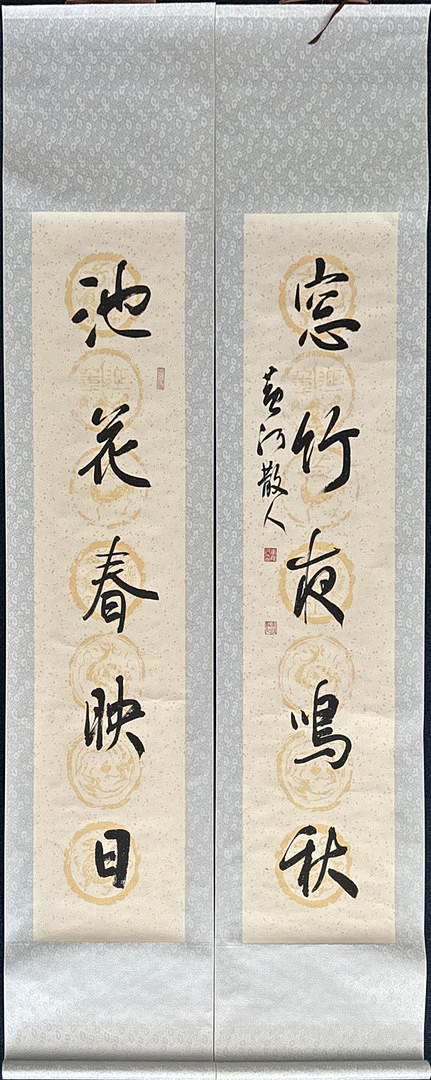 窓竹夜鳴秋
黄河散人
池花春映日